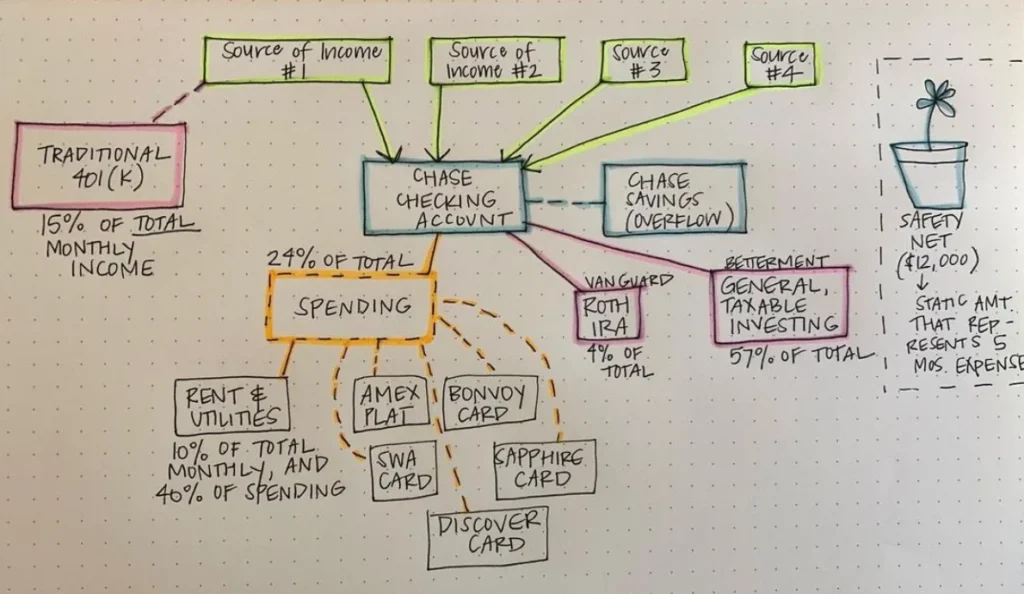 Source of Income
#1
Source of
Income #2
Source
#3
Source
#4
TRADITIONAL
401(K)
15% OF TOTAL
MONTHLY
INCOME
CHASE
CHECKING
ACCOUNT
CHASE
SAVINGS
(OVERFLOW)
24% OF TOTAL
SPENDING
VANGUARD
ROTH
IRA
4% OF
TOTAL
BETTERMENT
GENERAL,
TAXABLE
INVESTING
57% OF TOTAL
SAFETY
NET
($12,000)
STATIC AMT.
THAT REP-
RESENTS 5
MOS. EXPENSE
RENT &
UTILITIES
10% OF TOTAL
MONTHLY, AND
40% OF SPENDING
AMEX
PLAT
BONVOY
CARD
SWA
CARD
SAPPHIRE
CARD
DISCOVER
CARD